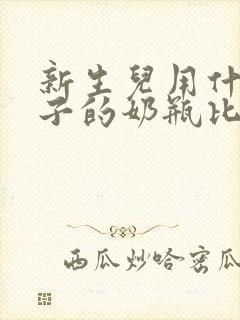 新生兒用什
子的奶瓶比
西瓜炒哈密瓜